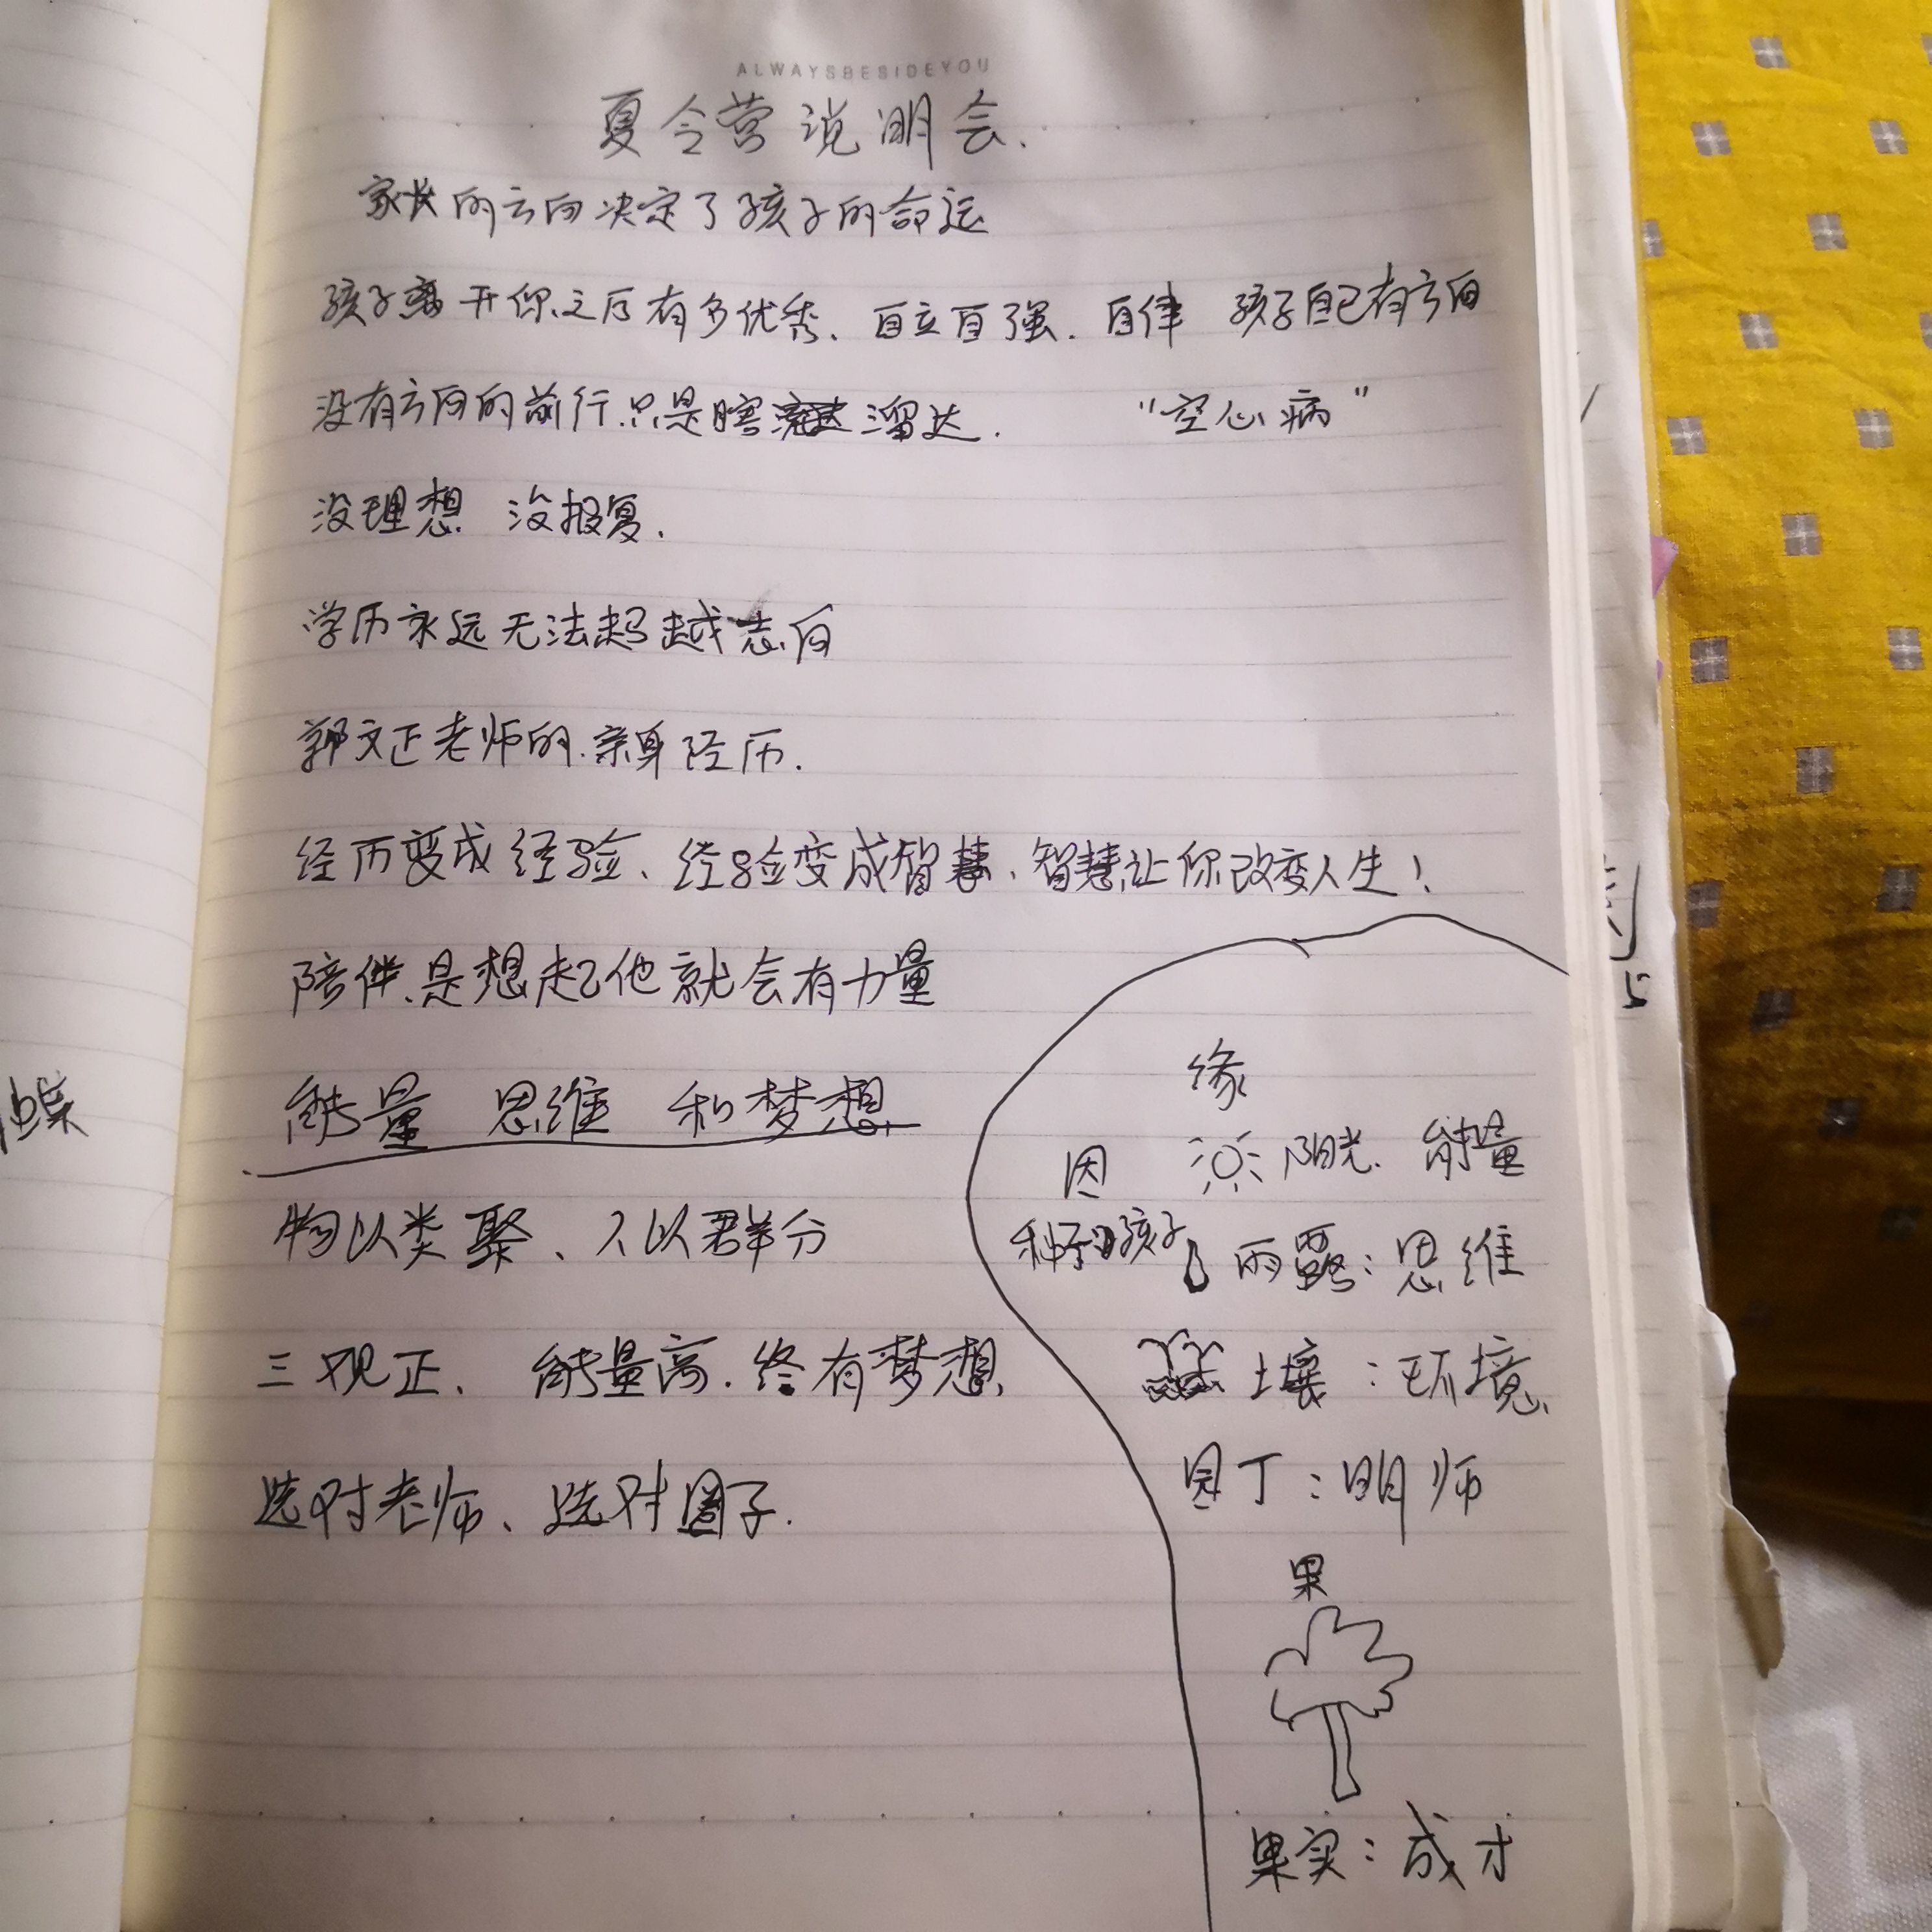 ALWAYSBESIDEYOU
夏令营说明会.
家长的方向决定了孩子的命运
孩子离开你之后有多优秀、自立自强.自律 孩子自己有方向
没有方向的前行.只是瞎溜达. “空心病”
没理想 没报复.
学历永远无法超越志向
郭文正老师的.亲身经历.
经历变成经验、经验变成智慧、智慧让你改变人生!
陪伴.是想起他就会有力量
能量 思维 和梦想
物以类聚、人以群分
三观正、能量高.终有梦想
选对老师、选对圈子.
缘
因 阳光.能量
种子:孩子 雨露:思维
土壤:环境
园丁:明师
果
果实:成才
蝶